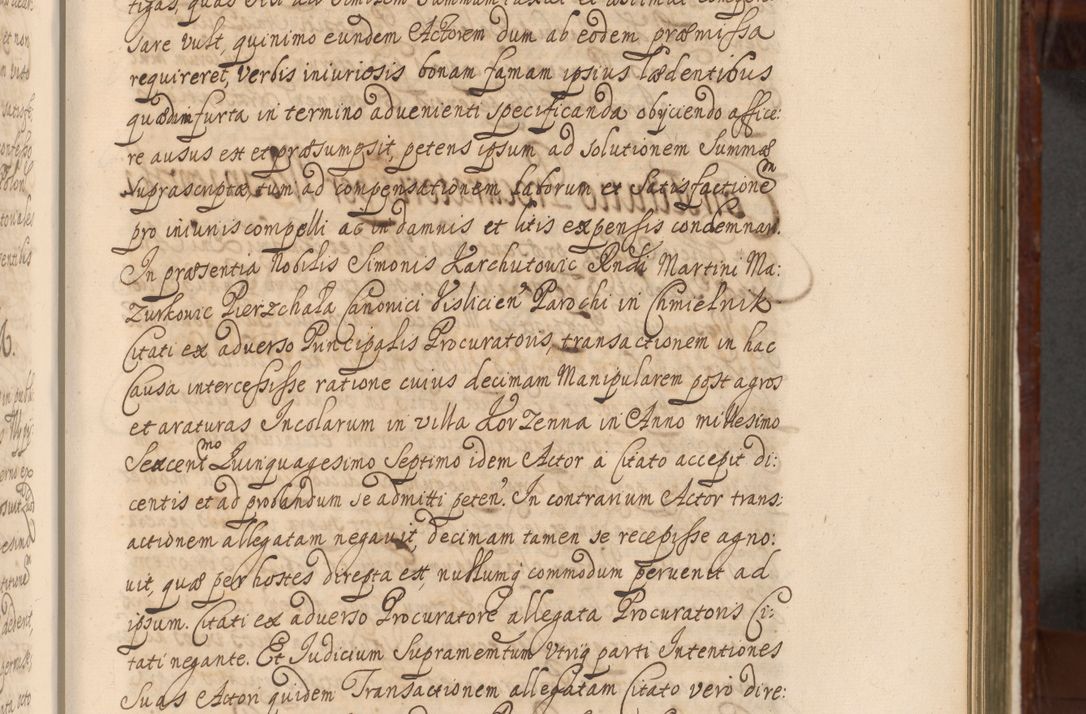 tigas, quas sibi ad similem summam taxat et
sare vult, quinimo eundem Actorem dum ab eodem præmissa
requireret, verbis iniuriosis bonam famam ipsius lædentibus
quædam furta in termino advenienti specificanda obijciendo affice:
re ausus est et præsumpsit, petens ipsum ad solutionem Summæ
suprascriptæ, tum ad compensationem laborum et satisfactionem
pro iniuriis compelli ac in damnis et litis expensis condemnari.
In præsentia Nobilis Simonis Karchutowic Rndi Martini Ma:
zurkowic Pierzchala Canonici Vislicien Parochi in Chmielnik
Citati ex adverso Principalis Procuratoris, transactionem in hac
Causa intercessisse ratione cuius decimam Manipularem post agros
et araturas Incolarum in villa Korzenna in Anno millesimo
Sexcentmo Quinquagesimo Septimo idem Actor a Citato accepit di:
centis et ad probandum se admitti peten. In contrarium Actor trans:
actionem allegatam negavit, decimam tamen se recepisse agno:
vit, quæ per hostes direpta est, nullumq commodum pervenit ad
ipsum. Citati ex adverso Procuratore allegata Procuratoris Ci:
tati negante. Et Iudicium Supramentum Vtriq parti Intentiones
Suas Actori quidem Transactionem allegatam Citato vero dire: